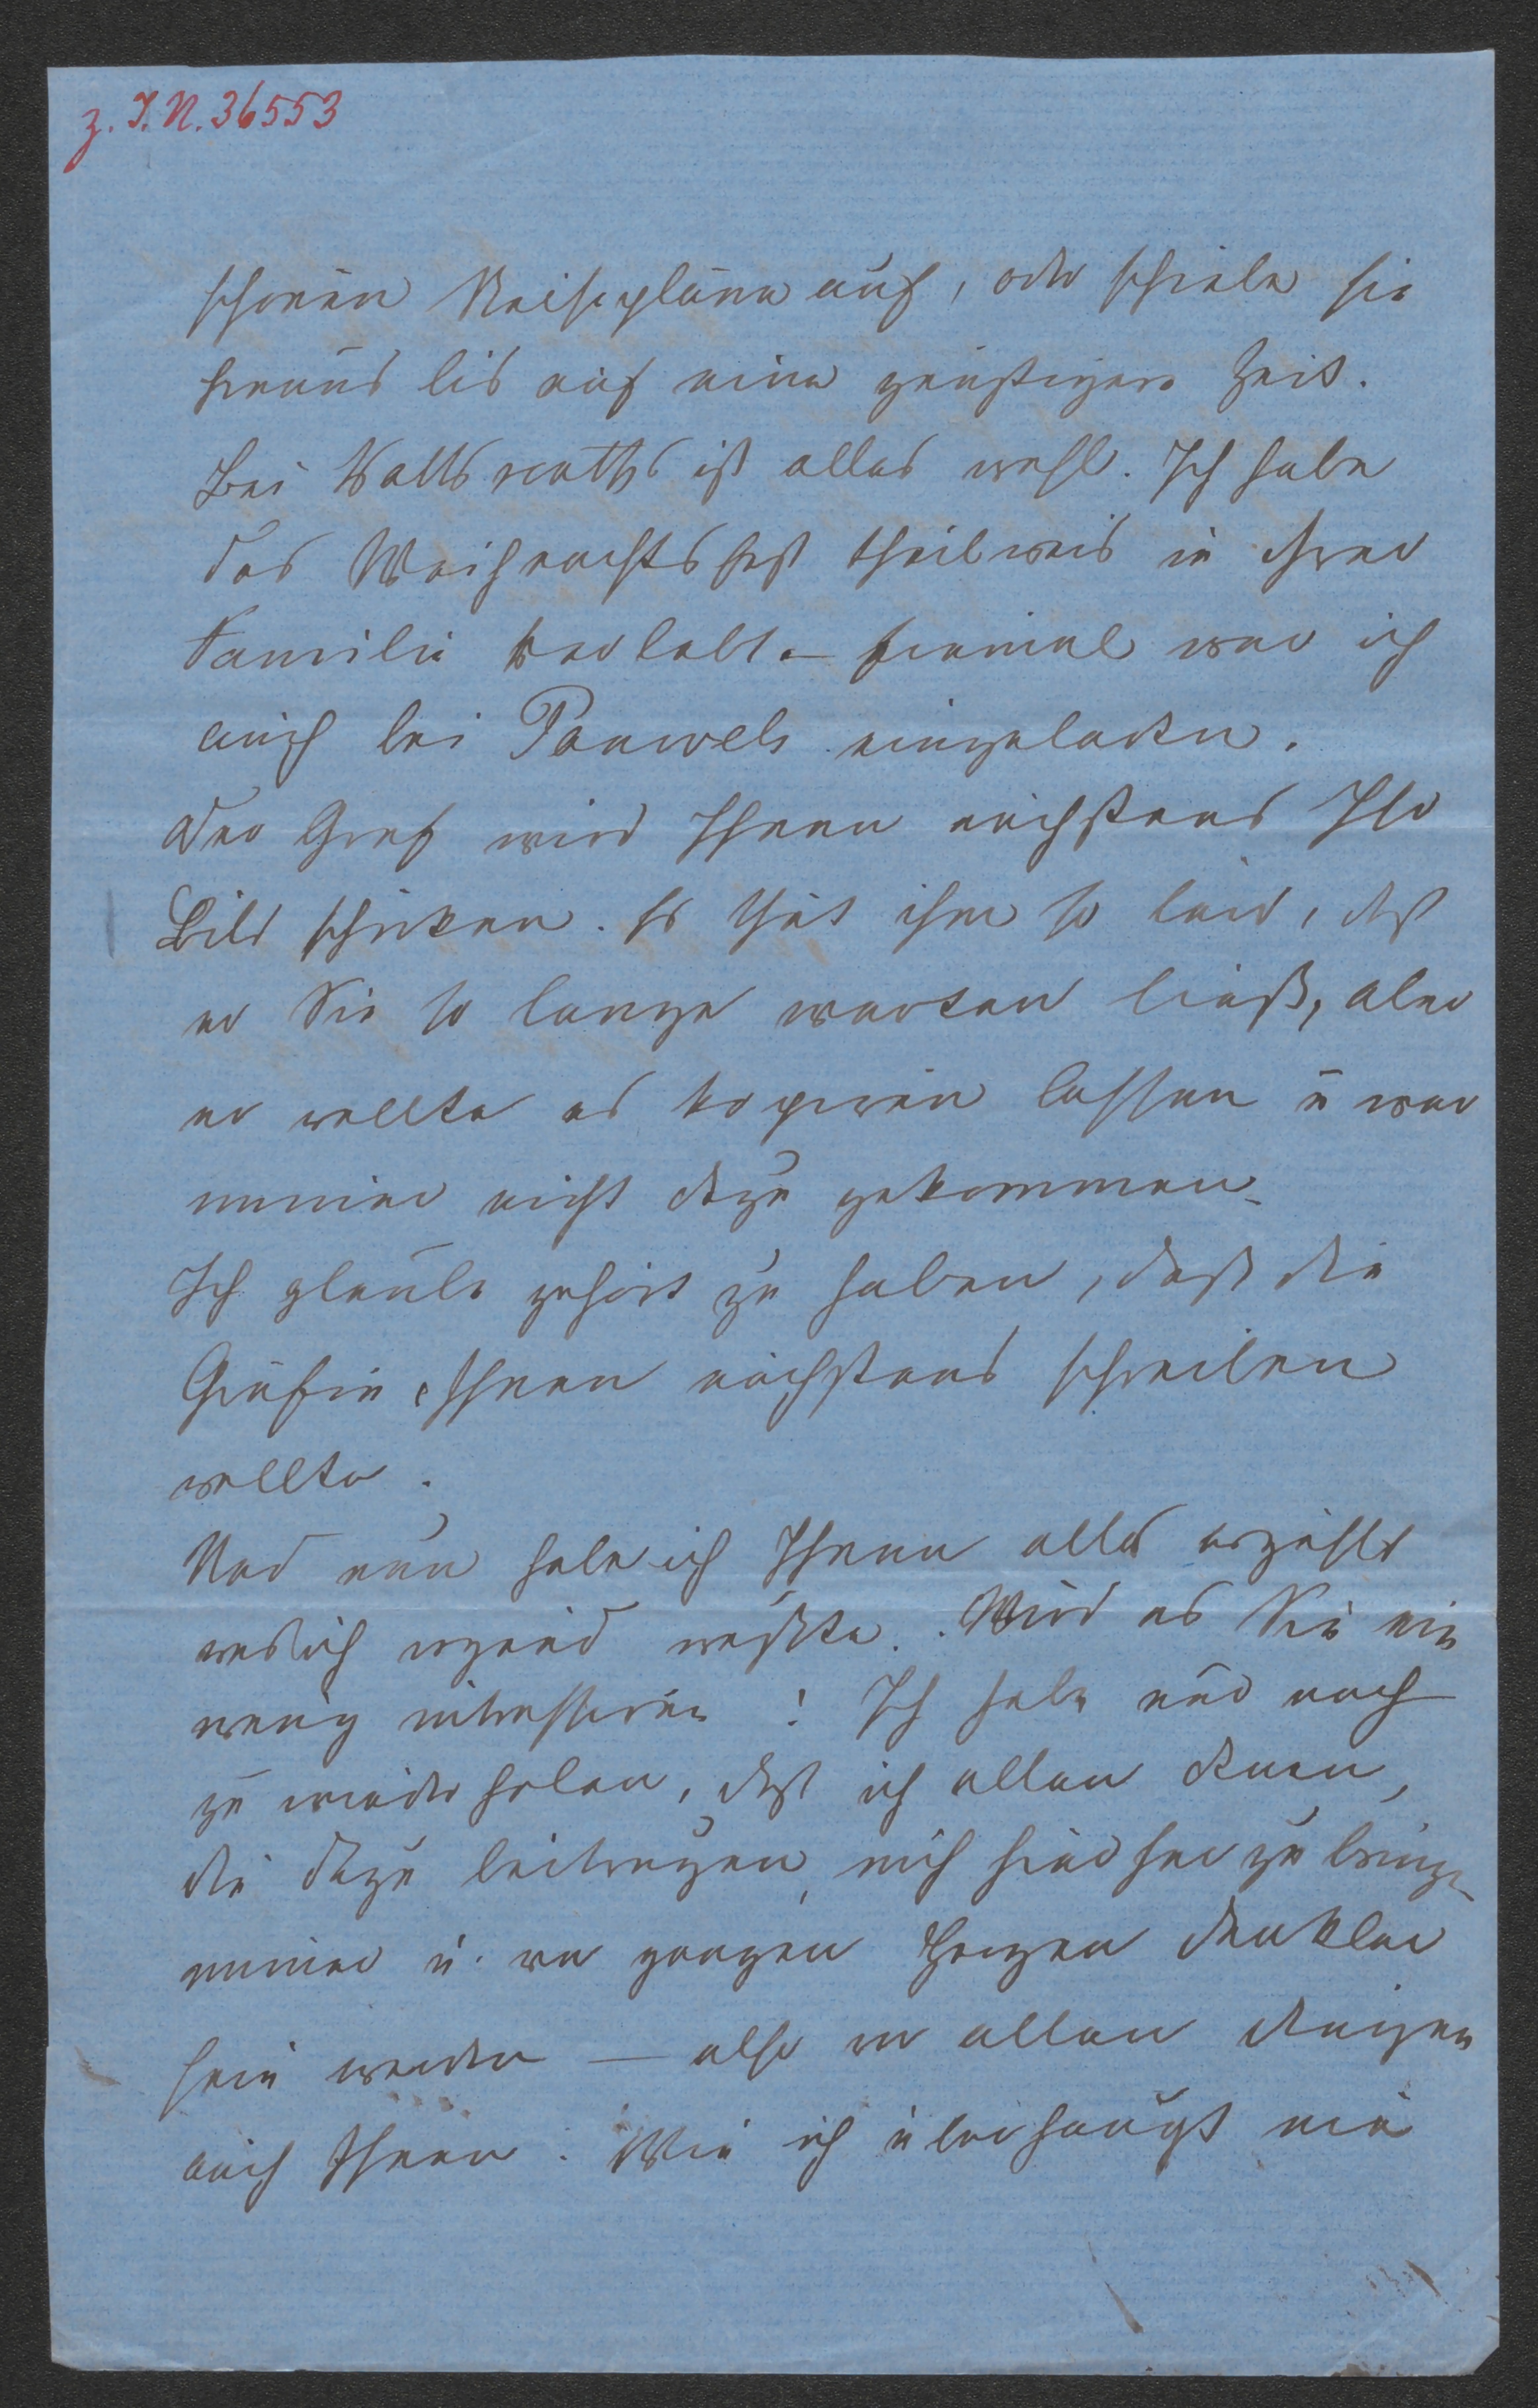 z. I. N. 36553
schönen Reisepläne auf, oder schiebe sie
hinaus bis auf eine günstigere Zeit.
Bei ist alles wohl. Ich habe
das Weihnachtsfest theilweis in ihrer
Familie verlebt – einmal war ich
auch bei Pauwels eingeladen.
Der Graf wird Ihnen nächstens Ihr
Bild schicken. Es thut ihm so leid, daß
er Sie so lange warten ließ, aber
er wollte es kopiren lassen u war
immer nicht dazu gekommen.
Ich glaube gehört zu haben, daß die
Gräfin Ihnen nächstens schreiben
wollte.
Und nun habe ich Ihnen alles erzählt
was ich irgend wußte. Wird es Sie ein
wenig interessiren! Ich habe nur noch
zu wiederholen, daß ich allen denen,
die dazu beitrugen, mich hierher zu bringen
immer u. von ganzem Herzen dankbar
sein werde – also vor allen Dingen
auch Ihnen. Wie ich überhaupt nie